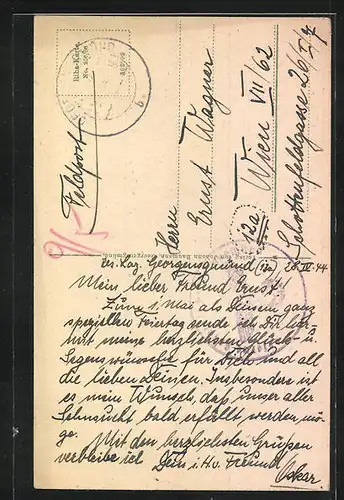 Feldpost
9/5
Herrn
Ernst Wagner
(12a) Wien VII/62
Schottenfeldgasse 26/I/7
Res. Laz. Georgensgmünd (13a) 28.IV.44
Mein lieber Freund Ernst!
Zum 1. Mai als Deinem ganz
speziellen Feiertag sende ich Dir hier-
mit meine herzlichsten Glück- u.
Segenswünsche für Dich und all
die lieben Deinen. Insbesondere ist
es mein Wunsch, daß unser aller
Sehnsucht bald erfüllt werden mö-
ge.
Mit den herzlichsten Grüßen
verbleibe ich Dein i. H. v. Freund
Oskar